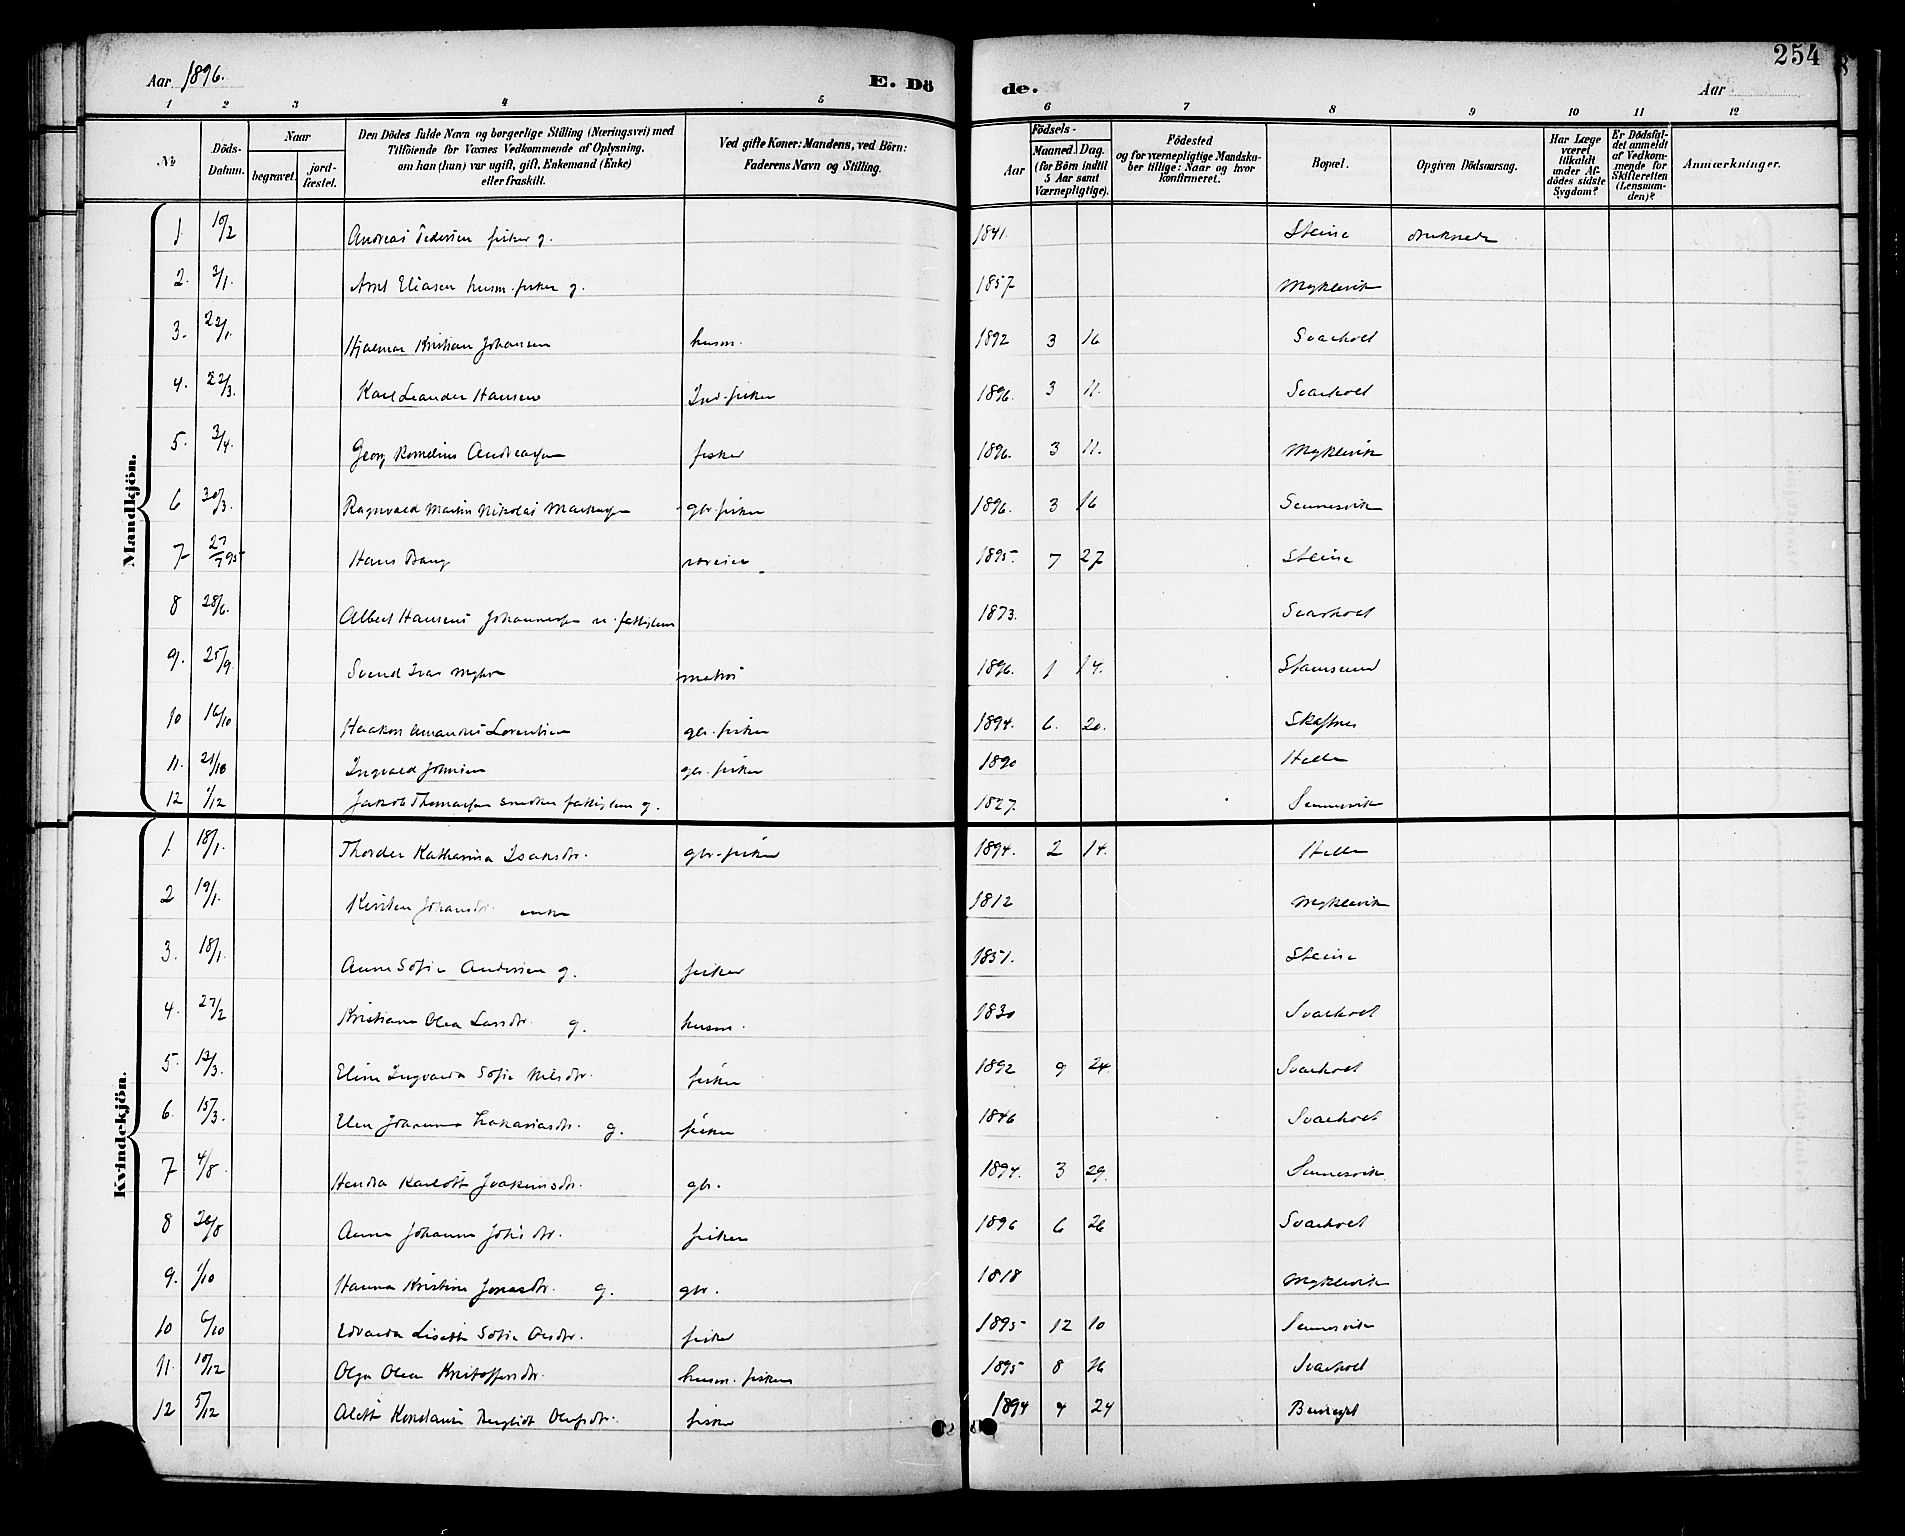 254
Aar 1896. E. Dö de. Aar
1 2 3 4 5 6 7 8 9 10 11 12
№ Döds-Datum. Naar begravet. jord-fæstet. Den Dödes fulde Navn og borgerlige Stilling (Næringsvei) med Tilföiende for Voxnes Vedkommende af Oplysning, om han (hun) var ugift, gift, Enkemand (Enke) eller fraskilt. Ved gifte Koner: Mandens, ved Börn: Faderens Navn og Stilling. Födsels- Aar Maaned. Dag. (for Börn indtil 5 Aar samt Værnepligtige). Födested og for værnepligtige Mandska-ber tillige: Naar og hvor konfirmeret. Bopæl. Opgiven Dödsaarsag. Har Læge været tilkaldt under Af-dödes sidste Sygdom? Er Dödsfal-det anmeldt af Vedkom-mende for Skifteretten (Lensman-den)? Anmærkninger.
Mandkjön.
1. 10/2 Andreas Pedersen fisker g. 1841. Steine druknede
2. 3/1. Arnt Eliasen husm. fisker g. 1857 Myklevik
3. 22/1. Hjalmar Kristian Johansen husm. 1892 3 16 Svarholt
4. 22/3. Karl Leander Hansen Ind. fisker 1896. 3 11. Svarholt
5. 3/4. Georg Kornelius Andreassen fisker 1896. 3 11. Myklevik
6 30/3. Ragnvald Martin Nikolai gbr. fisker 1896. 3 16 Sennesvik
7 27/7 95 Hans Bang 1895 7 27 Steine
8 28/6. Albert Hansens Johannessen u. fattiglem 1873. Svarholt
9. 25/9. Svend Ivar Myhre matros 1896. 1 14. Stamsund
10 16/10 Haakon Amandus Lorentsen gbr. fisker 1894. 6. 20. Skafnes
11. 21/10 Ingvald Johnsen gbr. fisker 1890 Helle
12 1/12 Jakob Thomassen snedker fattiglem g. 1827. Sennesvik
Kvindekjön.
1. 18/1. Thordea Katharina Isaksdtr. gbr. fisker 1894. 2 14. Helle
2 19/1. Kirsten Johansdtr. enke 1812 Myklevik
3. 18/1. Anne Sofie Andersen g. fisker 1851. Steine
4. 27/2 Kristiane Olea Larsdtr. g. husm. 1830 Svarholt
5. 12/3. Eline Ingvarda Sofie Nilsdtr. fisker 1892 9 24. Svarholt
6. 15/3. Elen Johanna Zakariasdtr. g. fisker 1846 Svarholt
7 4/8. Hendra Karlotte Joakimsdtr. gbr. 1894. 3 29. Sennesvik
8 26/8 Anna Johanna Johs dtr. fisker 1896 6 26 Svarholt
9. 1/10 Hanna Kristine Jonasdtr. g. gbr. 1818 Myklevik
10 6/10 Edvarda Lisette Sofie Olsdtr. fisker 1895 12 10 Sennesvik
11. 10/12 Olga Olea Kristoffersdtr. husm. fisker 1895 8 16 Svarholt
12 5/12 Alette Konstanse Bergliot Olufsdtr. fisker 1894 4 24